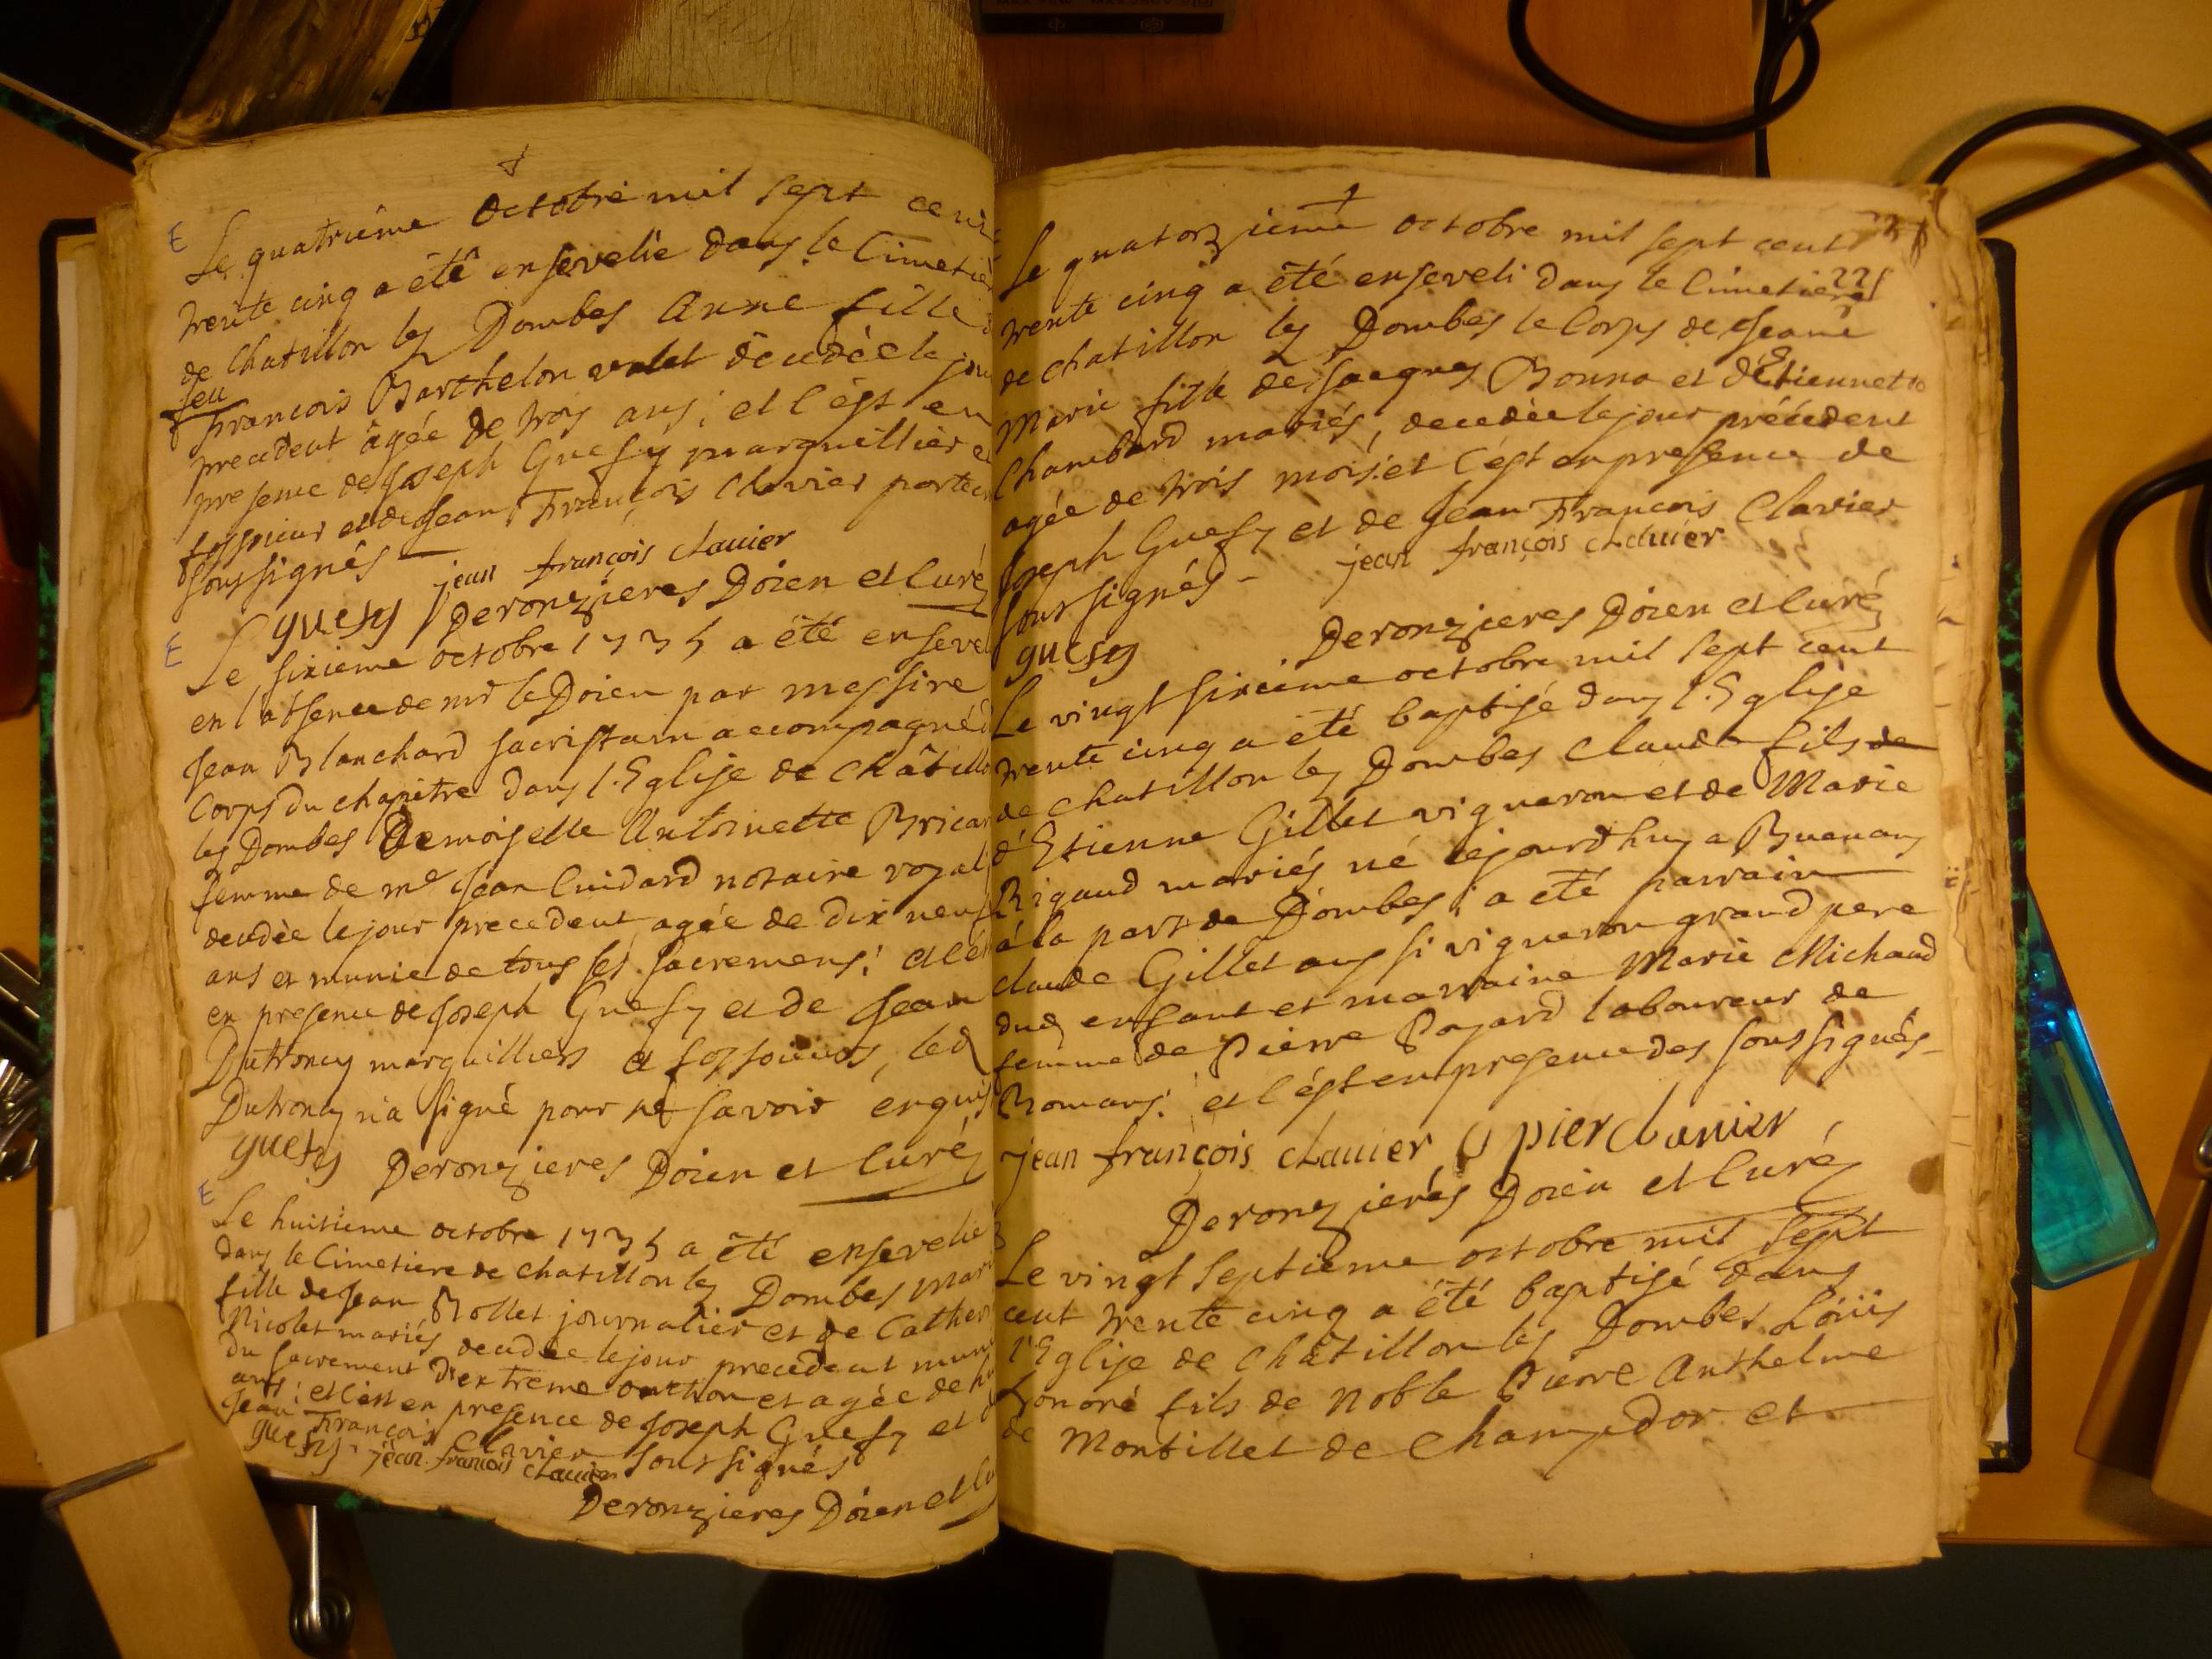 E
Le quatrième octobre mil sept cent
trente cinq a êtê ensevelie dans le Cimetie
de Chatillon les Dombes Anne fille
feu
François Barthelon valet decedée le jou
precedent âgée de trois ans; et c'est en
presence de Joseph Guesy marguillier e
fossoieur et de Jean François Clavier porteur
soussignés
jean françois clauier
guesy Deronzieres Doien et Curé
E
Le sixieme octobre 1735 a êtê enseve
en l'absence de mr le Doien par messire
Jean Blanchard sacristain accompagné d
Corps du chapitre dans l'Eglise de Châtillo
les Dombes Demoiselle Antoinette Bricar
femme de me Jean Cuidard notaire royal
decedée le jour precedent, agée de dix neuf
ans et munie de tous ses sacremens; et c'ét
en presence de Joseph Guesy et de Jean
Dutroncy marguilliers et fossoieurs, led
Dutroncy n'a signé pour ne savoir enquis
guesy Deronzieres Doien et Curé
E
Le huitieme octobre 1735 a êtê ensevelie
dans le Cimetiere de chatillon les Dombes Mari
fille de Jean Rollet journalier et de Cather
Nicolet mariés decedée le jour precedent muni
du sacrement d'extreme onction et agée de hu
ans; et c'est en presence de Joseph Guesy et d
Jean François Clavier soussignés
guesy jean françois clauier
Deronzieres Doien et Cu
Le quatorzieme octobre mil sept cent
221
trente cinq a êtê enseveli dans le Cimetiere
de chatillon les Dombes le Corps de Jeane
Marie fille de Jacques Bonna et d'Etiennette
Chambard mariés, decedée le jour précédent
agée de trois mois: et c'est en presence de
Joseph Guesy et de Jean François Clavier
soussignés - jean françois clauier
guesy Deronzieres Doien et Curé
Le vingt sixieme octobre mil sept cent
trente cinq a êtê baptisé dans l'Eglise
de chatillon les Dombes Claude fils de
d'Etienne Gillet vigneron et de Marie
Rigaud mariés né cejourdhuy a Buenans
á la part de Dombes; a été parrain
claude Gillet aussi vigneron grand pere
dud enfant et marraine Marie Michaud
femme de Pierre Poyard laboureur de
Romans; et c'ést en presence des soussignés
jean françois clauier pier clauier
Deronzierés Doien et Curé
Le vingt septieme octobre mil sept
cent trente cinq a été baptisé dans
l'Eglise de Châtillon les Dombes Loüis
honoré fils de Noble Pierre Anthelme
de Montillet de Champdor et